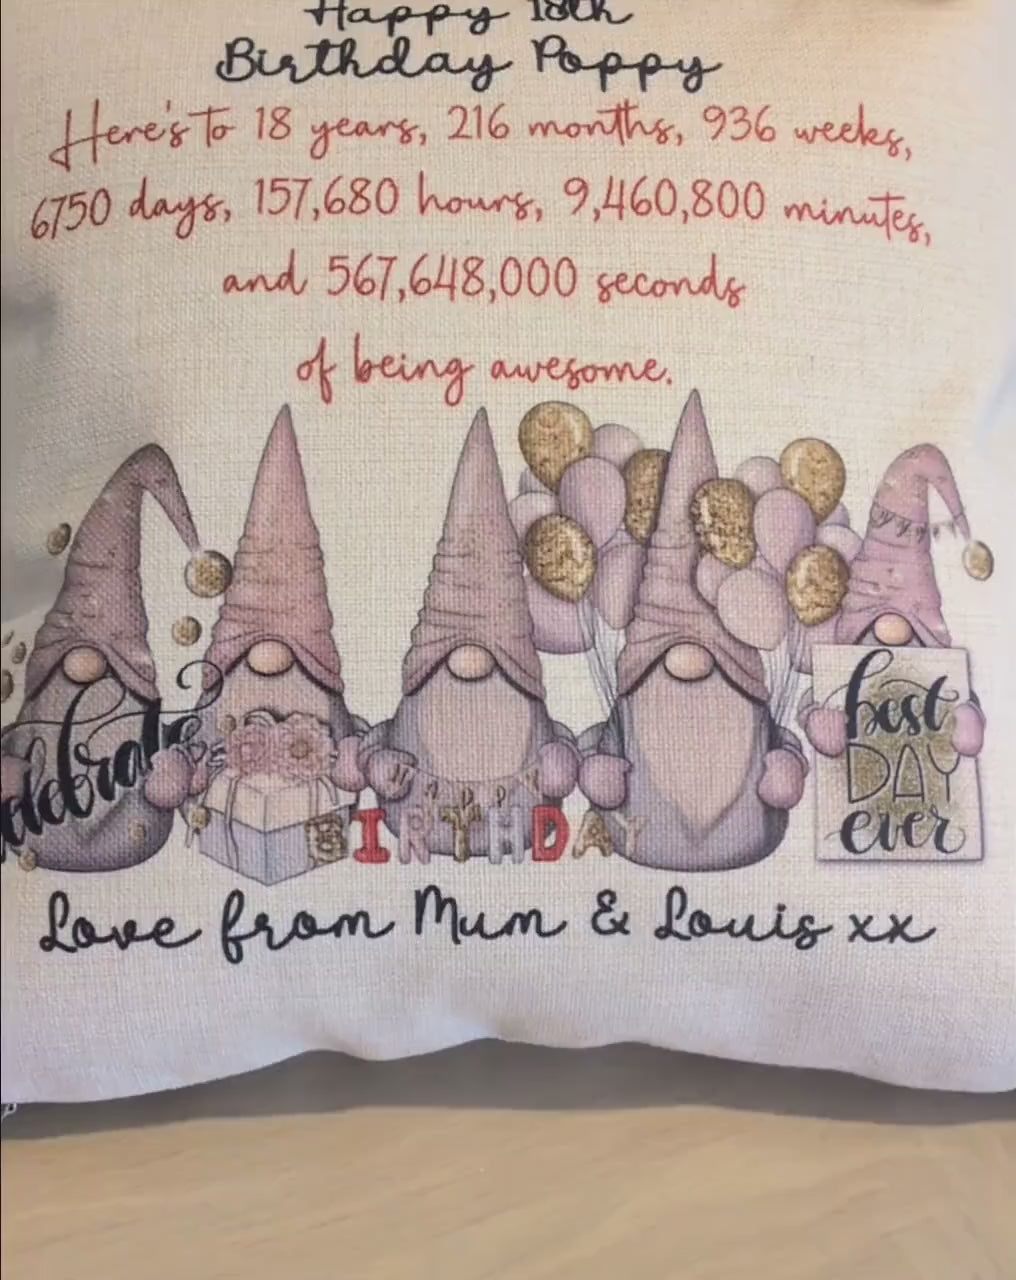 Happy 18th
Birthday Poppy
Here's to 18 years, 216 months, 936 weeks,
6750 days, 157,680 hours, 9,460,800 minutes,
and 567,648,000 seconds
of being awesome.
Celebrate
best
DAY
ever
BIRTHDAY
Love from Mum & Louis xx